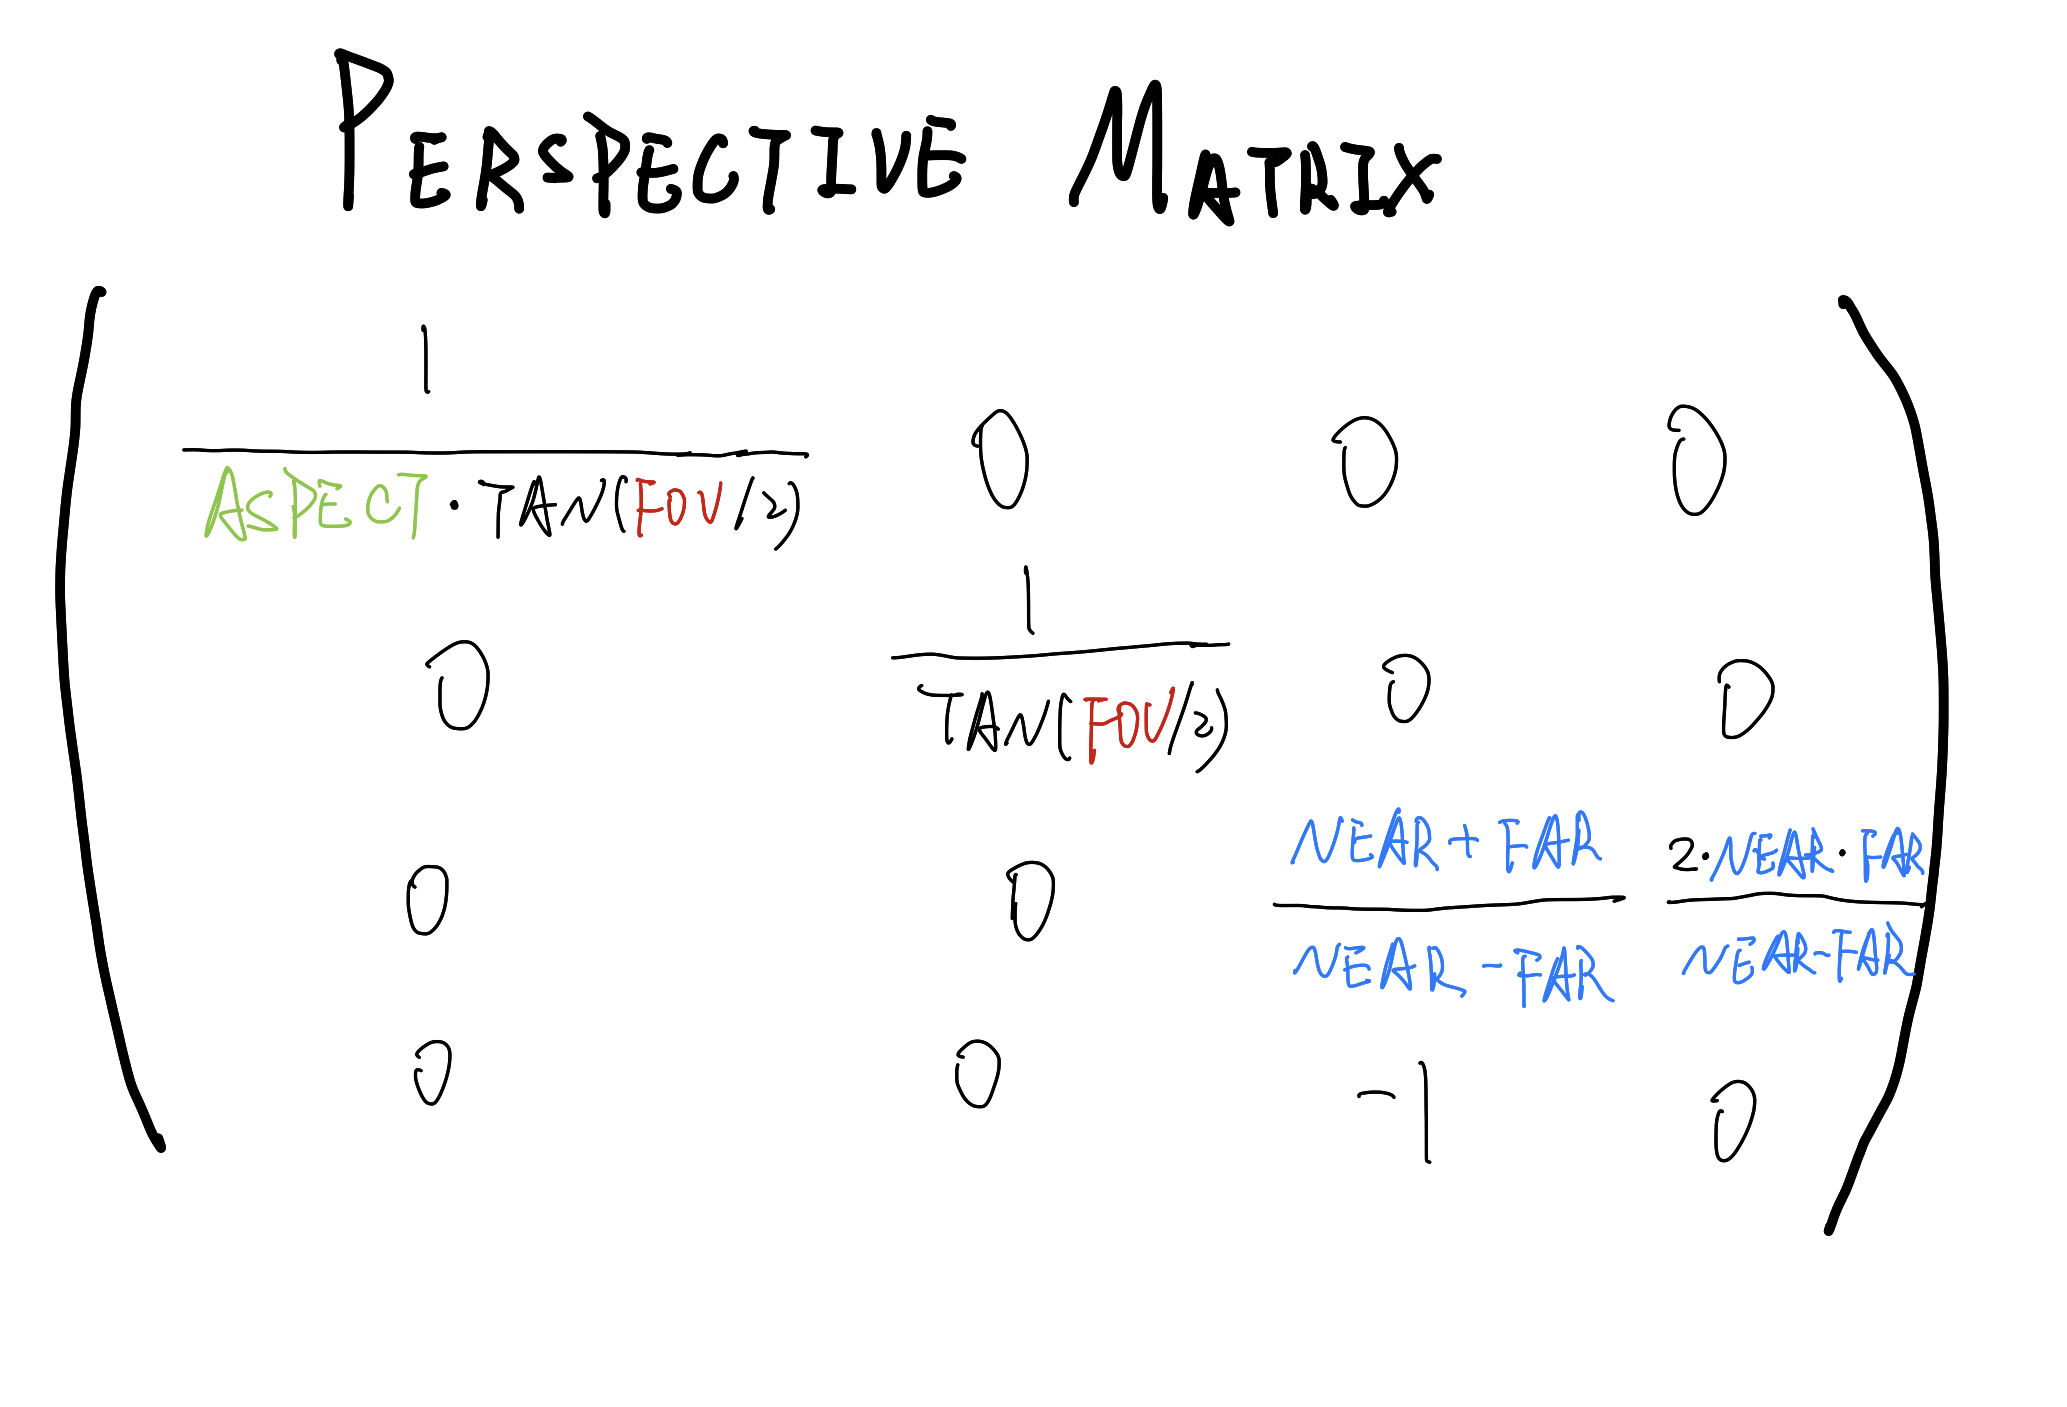 PERSPECTIVE MATRIX
1
ASPECT · TAN(FOV/2) 0 0 0
1
0 TAN(FOV/2) 0 0
NEAR + FAR 2·NEAR·FAR
0 0
NEAR - FAR NEAR-FAR
0 0 -1 0